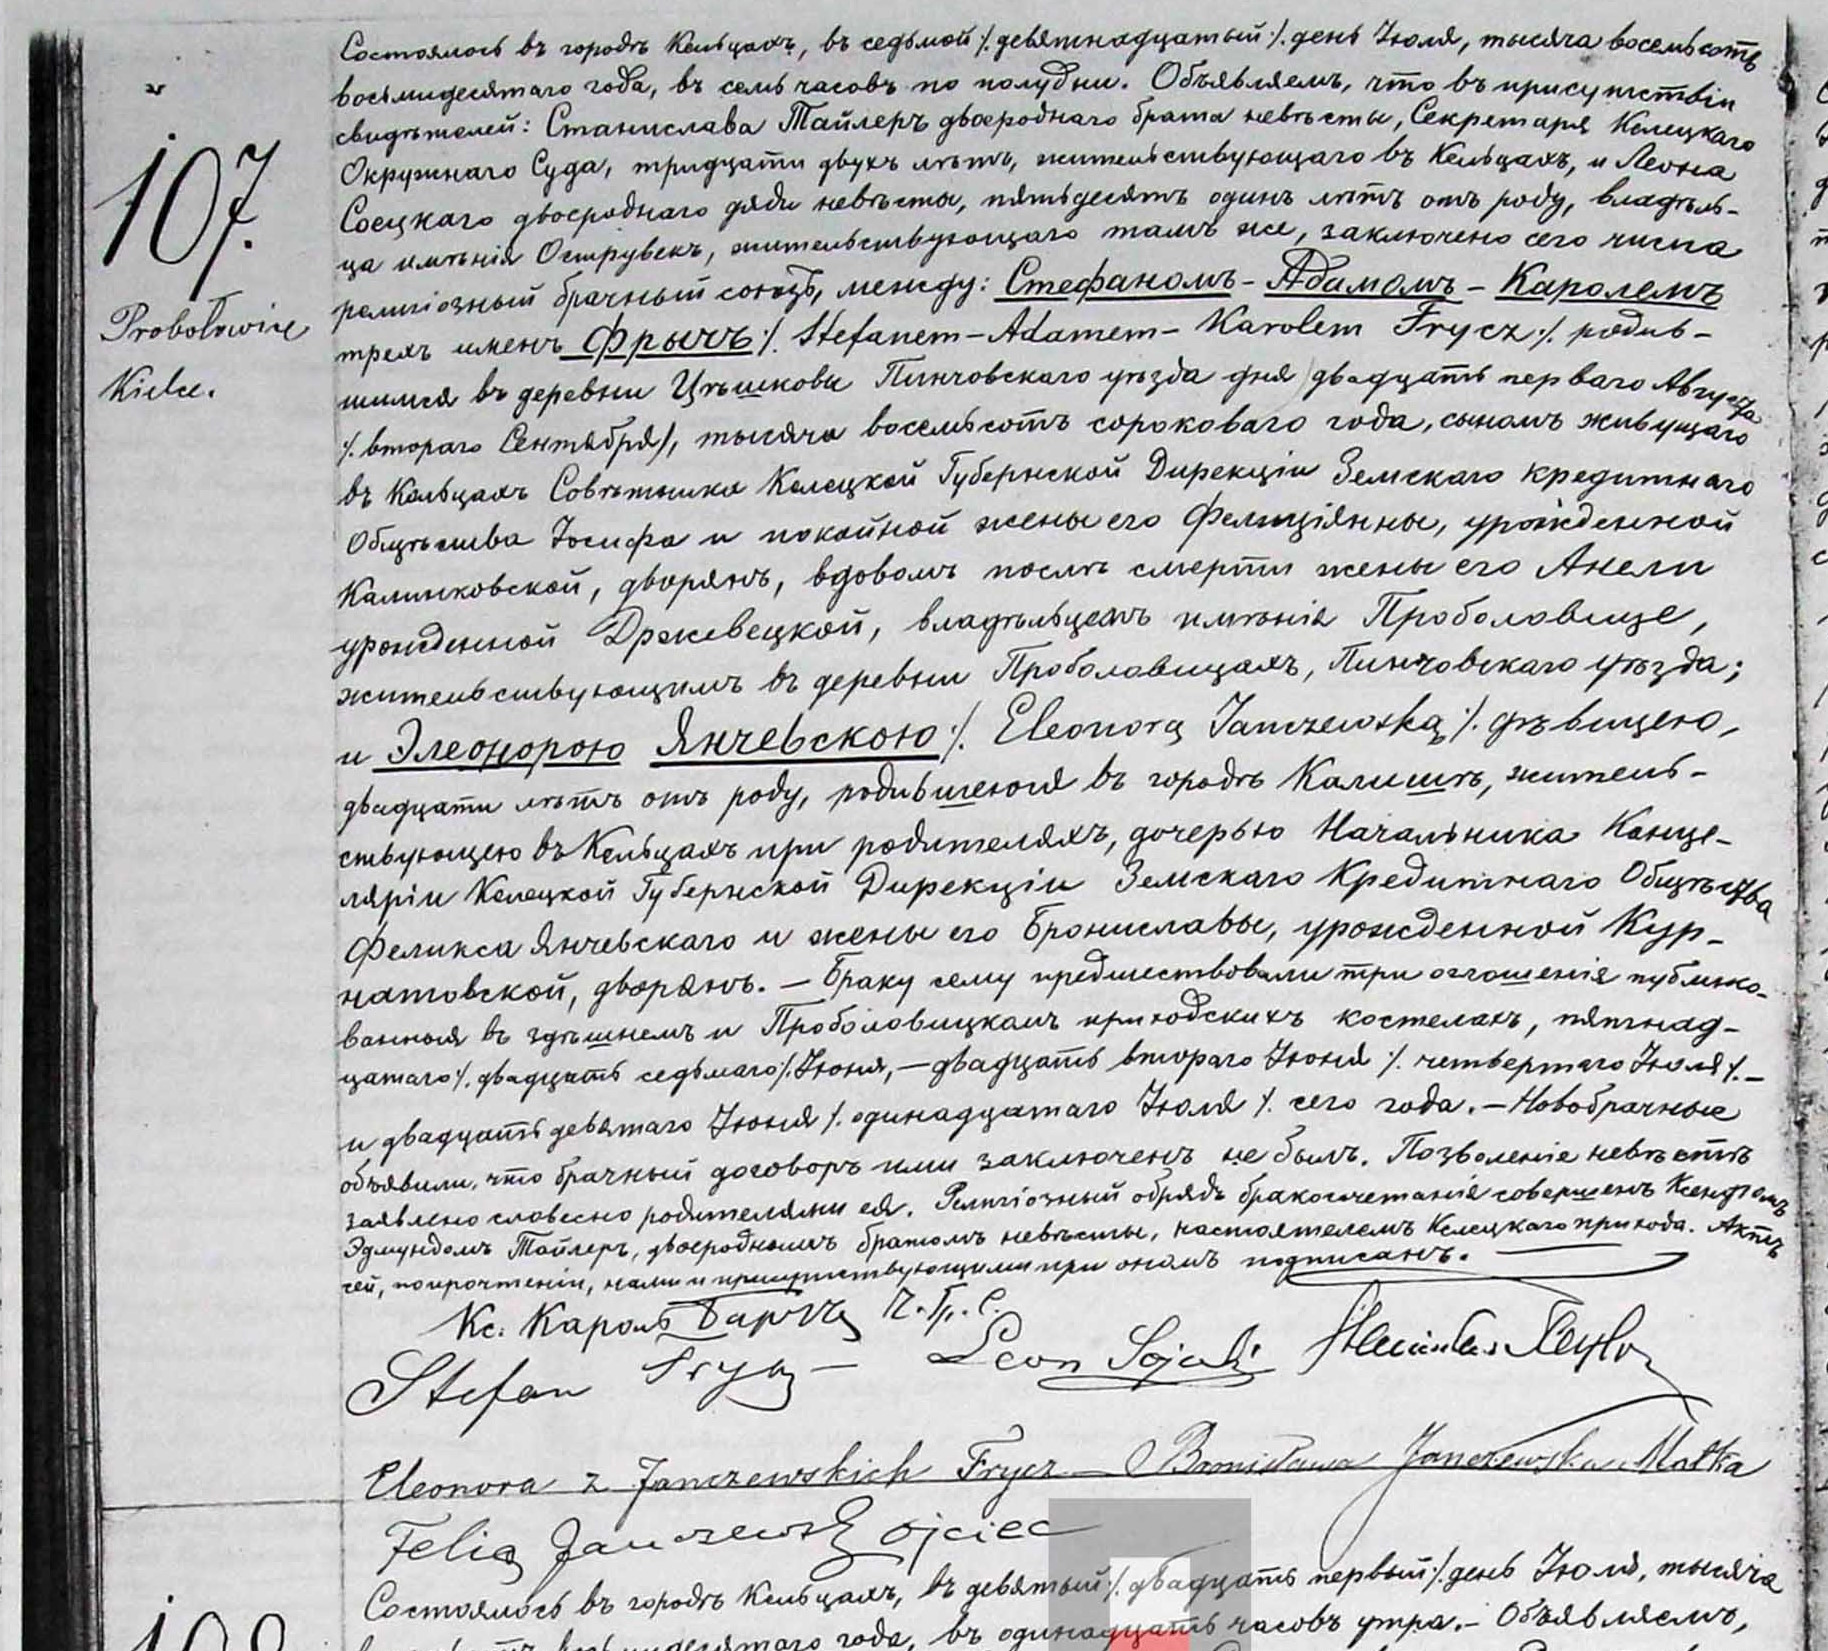 Состоялось въ городѣ Кельцахъ, въ седьмой /девятнадцатый/ день Іюля, тысяча восемьсотъ
восьмидесятаго года, въ семь часовъ по полудни. Объявляемъ, что въ присутствіи
свидѣтелей: Станислава Тайлеръ двоероднаго брата невѣсты, Секретаря Келецкаго
107.
Окружнаго Суда, тридцати двухъ лѣтъ, жительствующаго въ Кельцахъ, и Леона
Сосцкаго двоероднаго дяди невѣсты, пятьдесятъ одинъ лѣтъ отъ роду, владѣль-
ца имѣнія Острувекъ, жительствующаго тамъ же, заключено сего числа
религіозный брачный союзъ, между: Стефаномъ-Адамомъ-Каролемъ
Probołowice
трехъ именъ Фрычъ /Stefanem-Adamem-Karolem Frycz/ родив-
Kielce.
шимся въ деревни Цѣшковы Пинчовскаго уѣзда дня двадцать перваго Августа
/втораго Сентября/, тысяча восемьсотъ сороковаго года, сыномъ живущаго
въ Кельцахъ Совѣтника Келецкой Губернской Дирекціи Земскаго кредитнаго
Общѣства Іосифа и покойной жены его Фелиціянны, урожденной
Калинковской, дворянъ, вдовомъ послѣ смерти жены его Анели
урожденной Држевецкой, владѣльцемъ имѣнія Проболовице,
жительствующимъ въ деревни Проболовицахъ, Пинчовскаго уѣзда;
и Элеонорою Янчевскою /Eleonorą Janczewską/ дѣвицею,
двадцати лѣтъ отъ роду, родившеюся въ городѣ Калишѣ, житель-
ствующею въ Кельцахъ при родителяхъ, дочерью Начальника Канце-
ляріи Келецкой Губернской Дирекціи Земскаго Кредитнаго Общѣства
Феликса Янчевскаго и жены его Брониславы, урожденной Кур-
натовской, дворянъ. — Браку сему предшествовали три оглошенія публико-
ванныя въ здѣшнемъ и Проболовицкомъ приходскихъ костелахъ, пятнад-
цатаго /двадцать седьмаго/ Іюня, — двадцать втораго Іюня /четвертаго Іюля/ —
и двадцать девятаго Іюня /одинадцатаго Іюля/ сего года. — Новобрачные
объявили, что брачный договоръ ими заключенъ не былъ. Позволеніе невѣстѣ
заявлено словесно родителями ея. Религіозный обрядъ бракосочетанія совершенъ Ксендзомъ
Эдмундомъ Тайлеръ, двоероднымъ братомъ невѣсты, настоятелемъ Келецкаго прихода. Актъ
сей, по прочтеніи, нами и присутствующими при ономъ подписанъ.
Кс. Кароль П. Г. С.
Stefan Frycz — Leon Stanisław Teyler
Eleonora z Janczewskich Frycz — Bronisława Janczewska Matka
Felix Janczewski ojciec
Состоялось въ городѣ Кельцахъ, въ девятый /двадцать первый/ день Іюля, тысяча
108
восьмидесятаго года, въ одинадцать часовъ утра. — Объявляемъ,